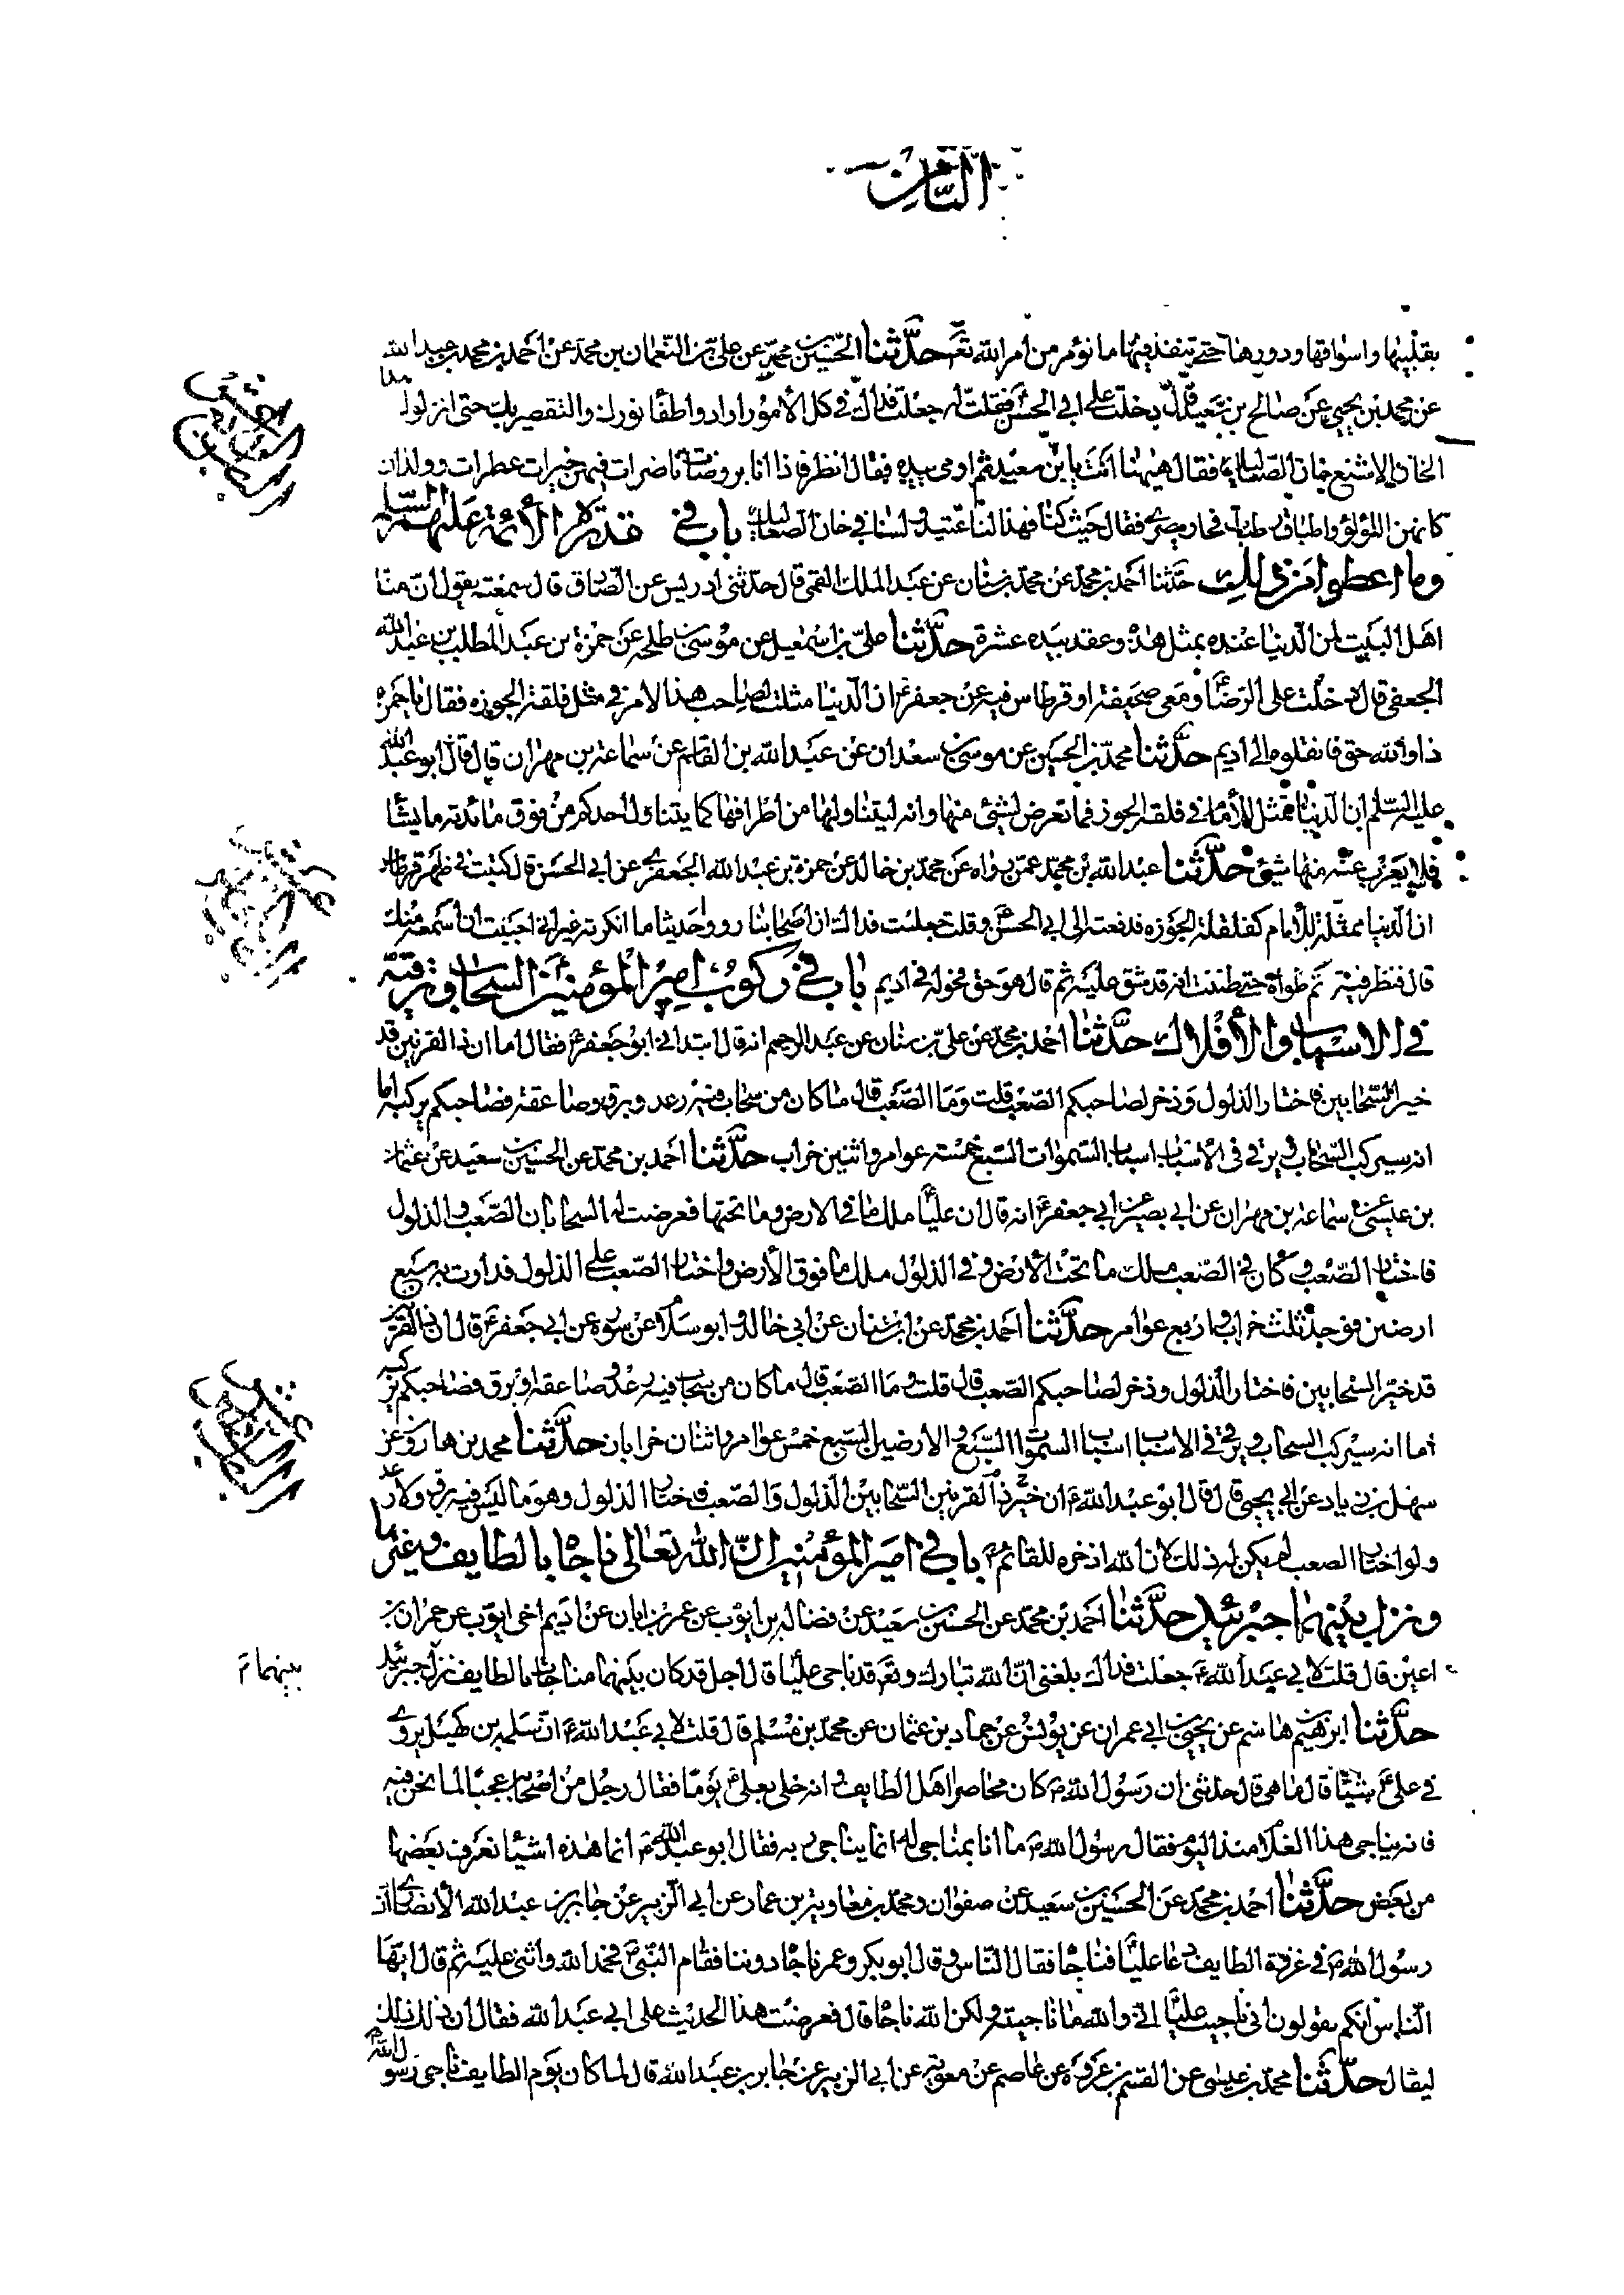 الثامن
بقلبها واسواقها ودورها حتى تنفذ فيها ما نؤمر من امر الله تع حدّثنا الحسين بن محمد عن علي بن النعمان بن محمد عن احمد بن محمد بن عبد الله
عن محمد بن يحيى عن صالح بن سعيد قال دخلت على ابي الحسن فقلت له جعلت فداك في كل الأمور ارادوا اطفا نورك والتقصير بك حتى انزلوك هذا
الخان الاشنع خان الصعاليك فقال هيهنا انت يا بن سعيد ثم اومى بيده فقال انظر فاذا انا بروضات ناضرات فيهن خيرات عطرات وولدان
كانهن اللؤلؤ واطباق رطب فحار بصرى فقال حيث كنا فهذا لنا عتيد ولسنا في خان الصعاليك باب في قدرة الأئمة عليهم السلم
وما اعطوا من ذلك حدّثنا احمد بن محمد عن محمد بن سنان عن عبد الملك القمى قال حدثنى ادريس عن الصادق قال سمعته يقول ان منا
اهل البيت لمن الدنيا عنده بمثل هذه وعقد بيده عشرة حدّثنا علي بن اسمعيل عن موسى بن طلحه عن حمزة بن عبد المطلب بن عبد الله
الجعفى قال دخلت على الرضا ع ومعى صحيفة او قرطاس فيه عن جعفر ع ان الدنيا مثلت لصاحب هذا الامر في مثل فلقة الجوزه فقال يا حمزه
ذا والله حق فانقلوه الى اديم حدّثنا محمد بن الحسين عن موسى بن سعدان عن عبد الله بن القاسم عن سماعة بن مهران قال قال ابو عبد الله
عليه السلم ان الدنيا تمثل للأمام في فلقة الجوز فما تعرض لشئ منها وانه ليتناولها من اطرافها كما يتناول احدكم من فوق مائدته ما يشا
فلا يعزب عنه منها شئ حدّثنا عبد الله بن محمد عمن رواه عن محمد بن خالد عن حمزة بن عبد الله الجعفرى عن ابي الحسن قال كتبت في ظهر قرطاس
ان الدنيا ممثلة للأمام كفلقة الجوزه فدفعته الى ابي الحسن ع وقلت جعلت فداك ان اصحابنا رووا حديثا ما انكرته غير انى احببت ان اسمعه منك
قال فنظر فيه ثم طواه حتى ظننت انه قد شق عليه ثم قال هو حق فحوله في اديم باب في ركوب امير المؤمنين السحاب وترقيه
في الاسباب والأفلاك حدّثنا احمد بن محمد عن علي بن سنان عن عبد الرحيم انه قال ابتدانى ابو جعفر ع فقال اما ان ذا القرنين قد
خير السحابين فاختار الذلول وذخر لصاحبكم الصعب قلت وما الصعب قال ما كان من سحاب فيه رعد وبرق وصاعقة فصاحبكم يركبه اما
انه سيركب السحاب ويرقى في الأسباب اسباب السموات السبع خمسة عوامر واثنين خراب حدّثنا احمد بن محمد عن الحسين بن سعيد عن عثمان
بن عيسى عن سماعة بن مهران عن ابي بصير عن ابي جعفر ع انه قال ان عليا ع ملك ما في الارض وما تحتها فعرضت له السحابان الصعب والذلول
فاختار الصعب وكان في الصعب ملك ما تحت الأرض وفي الذلول ملك ما فوق الأرض واختار الصعب على الذلول فدارت به سبع
ارضين فوجد ثلث خراب واربع عوامر حدّثنا احمد بن محمد عن ابن سنان عن ابي خالد وابو سلام عن سوره عن ابي جعفر ع قال ان ذا القرنين
قد خير السحابين فاختار الذلول وذخر لصاحبكم الصعب قال قلت وما الصعب قال ما كان من سحاب فيه رعد وصاعقة او برق فصاحبكم يركبه
اما انه سيركب السحاب ويرقى في الاسباب اسباب السموات السبع والارضين السبع خمس عوامر واثنان خرابان حدّثنا محمد بن هارون عن
سهل بن زياد عن ابي يحيى قال قال ابو عبد الله ع ان خير ذا القرنين السحابين الذلول والصعب فاختار الذلول وهو ما ليس فيه برق ولا رعد
ولو اختار الصعب لم يكن له ذلك لان الله اذخره للقائم ع باب في امير المؤمنين ان الله تعالى ناجاه بالطايف وغيرها
ونزل بينهما جبرئيل حدّثنا احمد بن محمد عن الحسين بن سعيد عن فضاله بن ايوب عن عمر بن ابان عن اديم اخى ايوب عن حمران بن
اعين قال قلت لابي عبد الله ع جعلت فداك بلغنى ان الله تبارك وتع قد ناجى عليا قال اجل قد كان بينهما مناجاة بالطايف نزل جبرئيل
بينهما م
حدّثنا ابرهيم بن هاشم عن يحيى بن ابي عمران عن يونس عن حماد بن عثمان عن محمد بن مسلم قال قلت لابي عبد الله ع ان سلمه بن كهيل يروى
في على ع شيئا قال ما هى قال حدثنى ان رسول الله ص كان محاصرا اهل الطايف وانه خلى بعلى ع يوما فقال رجل من اصحابه عجبا لما نحن فيه
فانه يناجى هذا الغلام منذ اليوم فقال رسول الله ص ما انا بمناجى له انما يناجى ربه فقال ابو عبد الله ع انما هذه اشيا تعرف بعضها
من بعض حدّثنا احمد بن محمد عن الحسين بن سعيد عن صفوان ومحمد بن معاوية بن عمار عن ابي الزبير عن جابر بن عبد الله الأنصارى ان
رسول الله ص في غزوة الطايف دعا عليا ع فناجاه فقال الناس وقال ابو بكر وعمر ناجاه دوننا فقام النبى ص فحمد الله واثنى عليه ثم قال ايها
الناس انكم تقولون انى ناجيت عليا انى والله ما ناجيته ولكن الله ناجاه قال فعرضت هذا الحديث على ابي عبد الله فقال ان ذلك
ليقال حدّثنا محمد بن عيسى عن القسم بن عروة عن عاصم عن معوية عن ابي الزبير عن جابر بن عبد الله قال لما كان يوم الطايف ناجى رسول الله ص